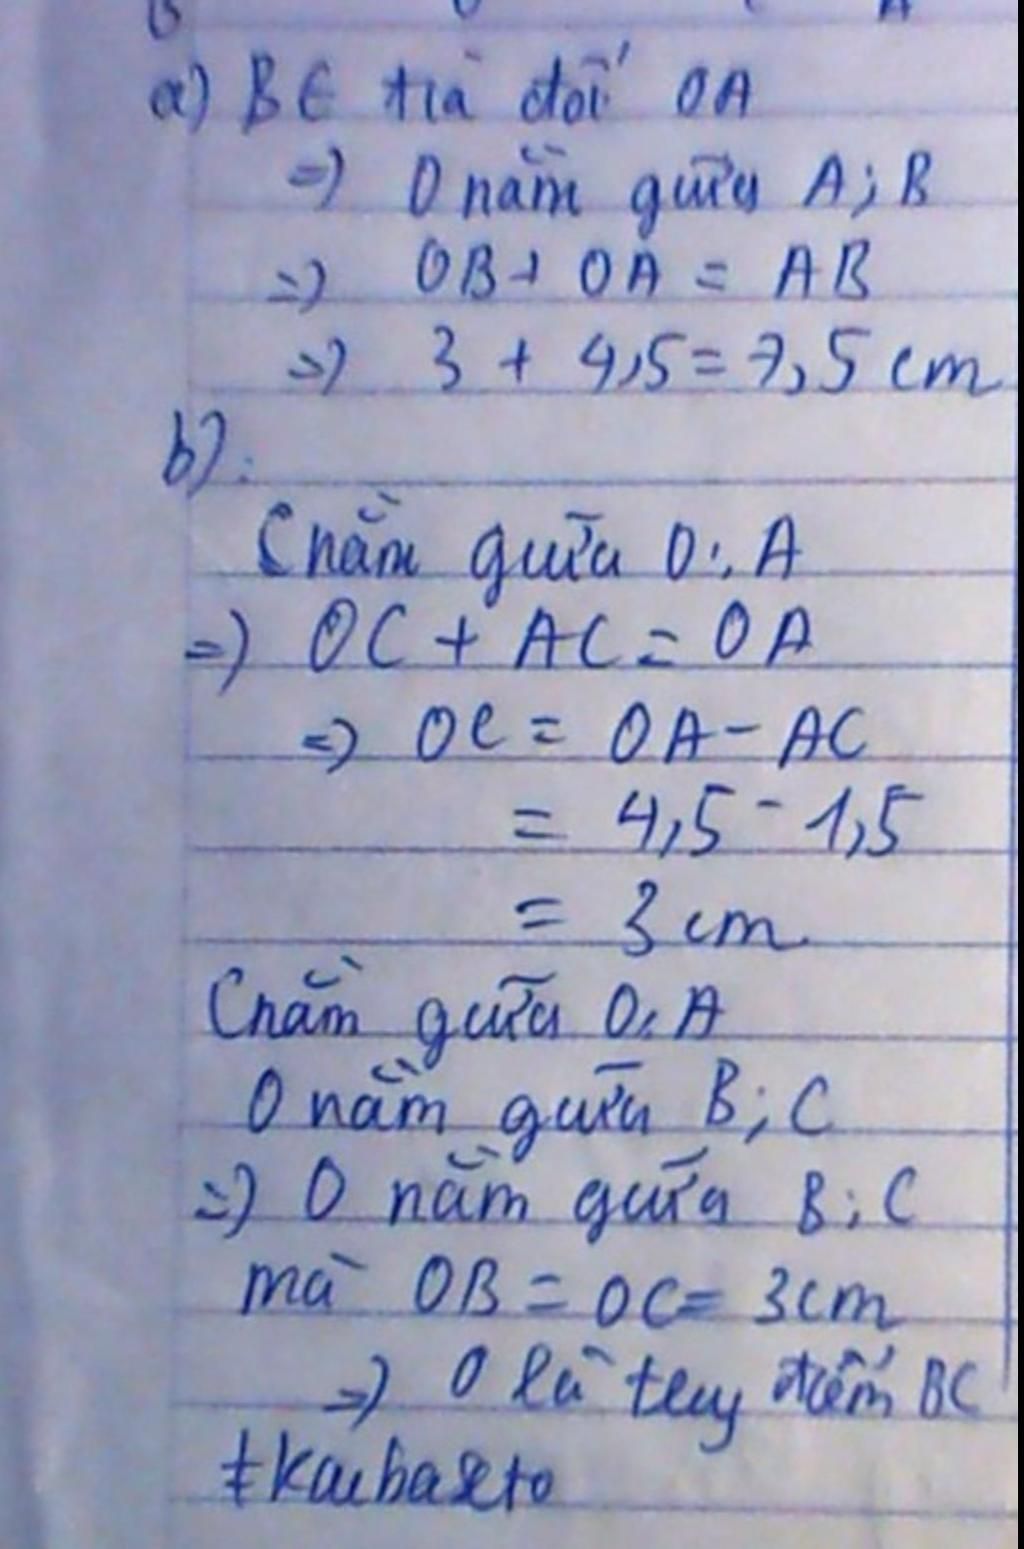 B O C A
a) B ∈ tia đối OA
=) O nằm giữa A; B
=) OB + OA = AB
=) 3 + 4,5 = 7,5 cm
b).
C nằm giữa O; A
=) OC + AC = OA
=) OC = OA - AC
= 4,5 - 1,5
= 3 cm
C nằm giữa O; A
O nằm giữa B; C
=) O nằm giữa B; C
mà OB = OC = 3cm
=) O là tug điểm BC